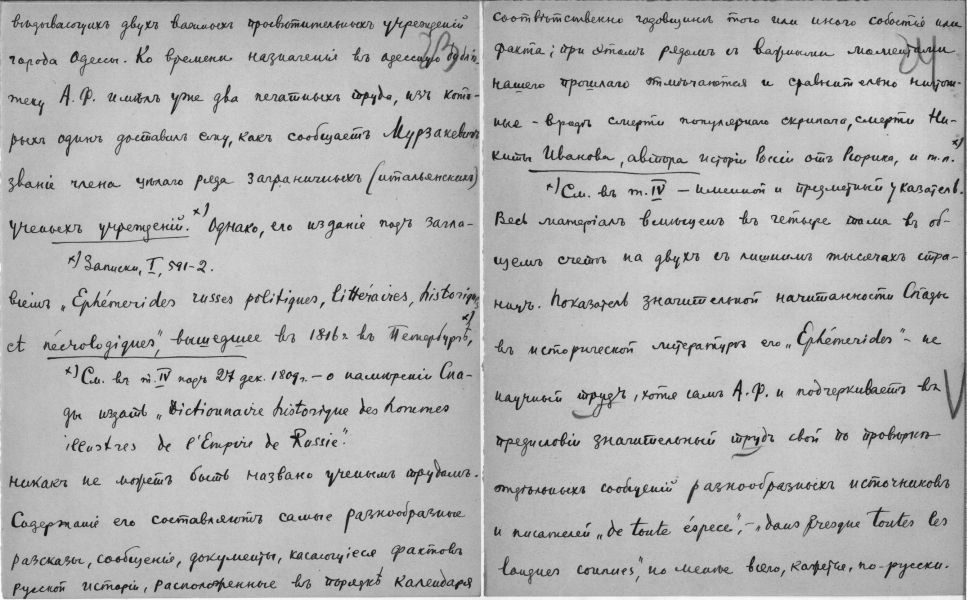 вѣдывающихъ двухъ важныхъ просвѣтительныхъ учрежденій
города Одессы. Ко времени назначенія въ одесскую библіо-
теку А.Ф. имѣлъ уже два печатныхъ труда, изъ кото-
рыхъ одинъ доставилъ ему, какъ сообщаетъ Мурзакевичъ
званіе члена цѣлаго ряда заграничныхъ (итальянскихъ)
ученыхъ учрежденій. х) Однако, его изданіе подъ загла-
х) Записки, I, 591-2.
віемъ „Ephémerides russes politiques, littéraires, historiques
et nécrologiques", вышедшее въ 1816 г. въ Петербургѣ, х)
х) См. въ т. IV подъ 27 дек. 1809 г. – о намѣреніи Спа-
ды издать „Dictionnaire historique des hommes
illustres de l'Empire de Russie".
никакъ не можетъ быть названо ученымъ трудомъ.
Содержаніе его составляютъ самые разнообразные
разсказы, сообщенія, документы, касающіеся фактовъ
русской исторіи, расположенные въ порядкѣ календаря
24
соотвѣтственно годовщинѣ того или иного событія или
факта; при этомъ рядомъ съ важными моментами
нашего прошлаго отмѣчаются и сравнительно ничтож-
ные - вродѣ смерти популярнаго скрипача, смерти Ни-
киты Иванова, автора исторіи Россіи отъ Рюрика, и т.п. х)
х) См. въ т. IV – именной и предметный указатель.
Весь матеріалъ вмѣщенъ въ четыре тома въ об-
щемъ счетѣ на двухъ съ лишнимъ тысячахъ стра-
ницъ. Показатель значительной начитанности Спады
въ исторической литературѣ его „Ephémerides" – не
научный трудъ, хотя самъ А.Ф. и подчеркиваетъ въ
предисловіи значительный трудъ свой по провѣркѣ
отдѣльныхъ сообщеній разнообразныхъ источниковъ
и писателей „de toute éspece", – „dans presque toutes les
langues connues", но менѣе всего, кажется, по-русски.